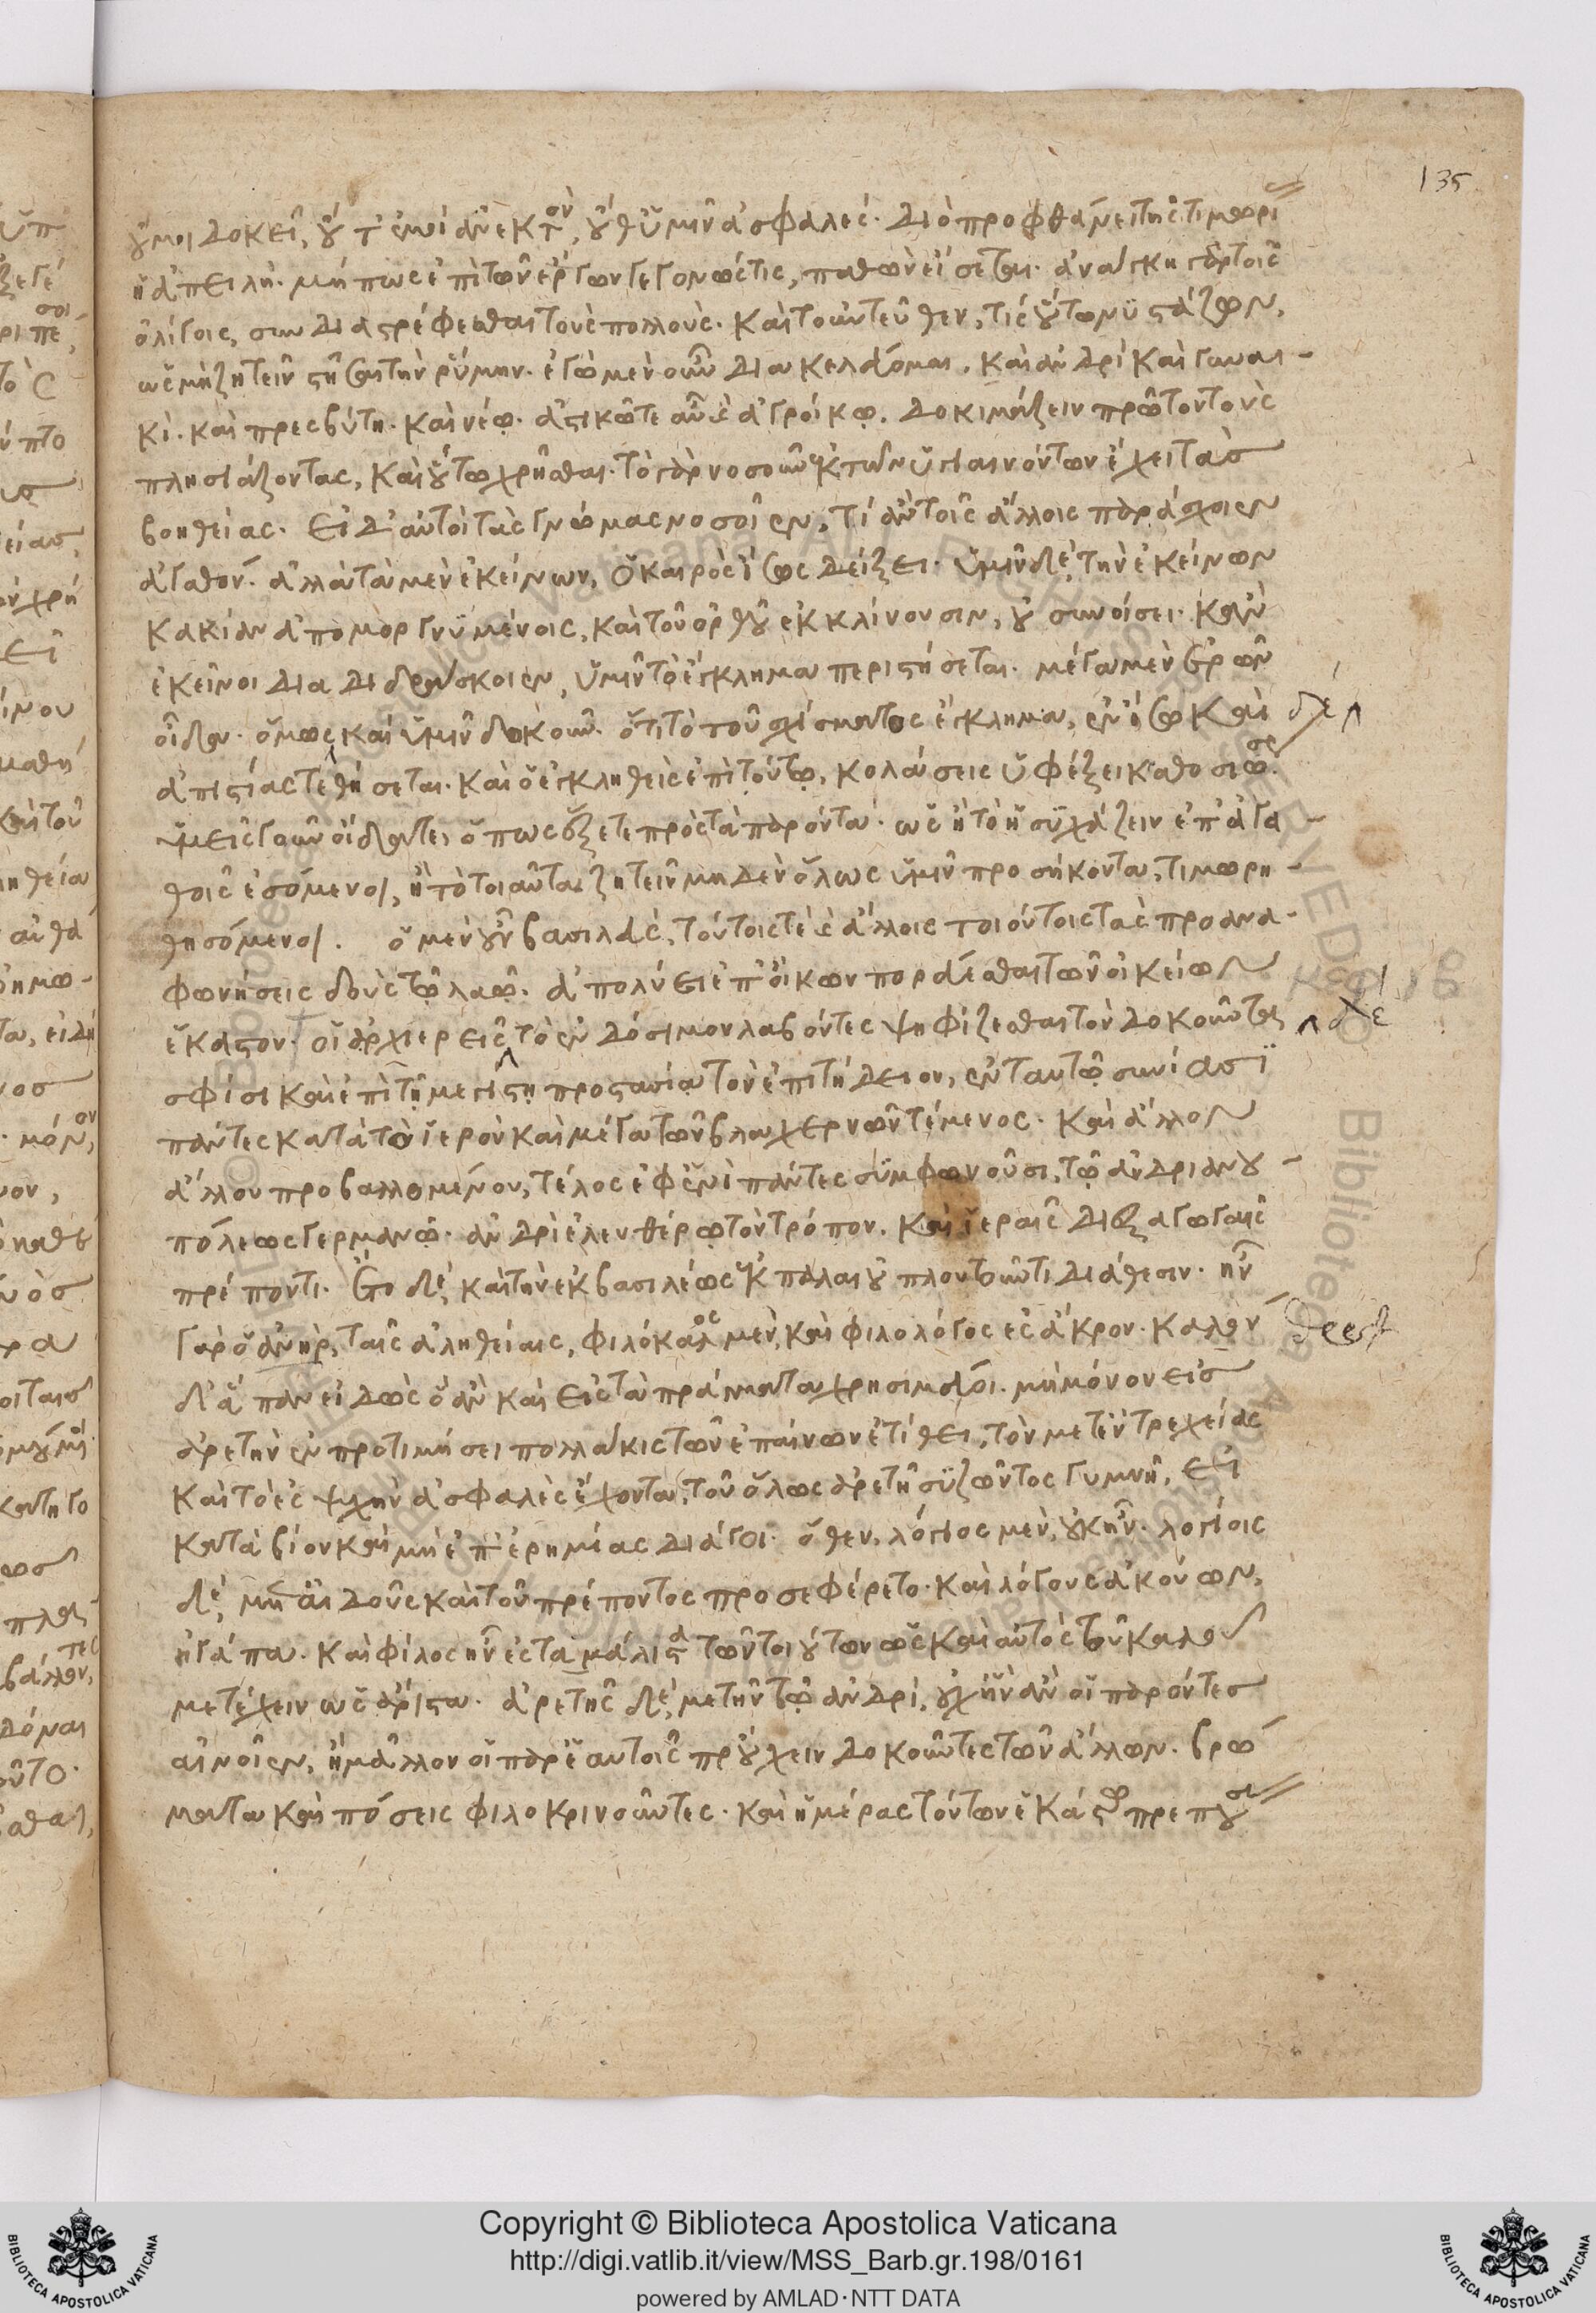 135
οὔ μοι δοκεῖ, οὔτ' ἐμοὶ ἀνεκτὸν, οὔθ' ὑμῖν ἀσφαλές. διὸ προφθάνει τῆς τιμωρί
ἡ ἀπειλή. μή πως ἐπὶ τῶν ἔργων γεγονώς τις, παθὼν εἴσεται. ἀνάγκη γὰρ τοῖς
ὀλίγοις, συνδιαστρέφεσθαι τοὺς πολλούς. καὶ τοὐντεῦθεν, τίς οὕτω νυστάζων,
ὡς μὴ ζητεῖν στῆσαι τὴν ῥύμην. ἐγὼ μὲν οὖν διακελεύομαι. καὶ ἀνδρὶ καὶ γυναι-
κί. καὶ πρεσβύτῃ. καὶ νέῳ. ἀστικῶ τε αὖ καὶ ἀγροίκῳ. δοκιμάζειν πρῶτον τοὺς
πλησιάζοντας, καὶ οὕτω χρῆσθαι. τὸ γὰρ νοσοῦν ἐκ τῶν ὑγιαινόντων ἔχει τὰς
βοηθείας. εἰ δ' αὐτοὶ τὰς γνώμας νοσοῖεν, τί ἂν τοῖς ἄλλοις παράσχοιεν
ἀγαθόν. ἀλλὰ τὰ μὲν ἐκείνων, ὁ καιρὸς ἴσως δείξει. ὑμῖν δὲ, τὴν ἐκείνων
κακίαν ἀπομοργνυμένοις, καὶ τοῦ ὀρθοῦ ἐκκλίνουσιν, οὐ συνοίσει. κἂν
ἐκεῖνοι διαδιδράσκοιεν, ὑμῖν τὸ ἔγκλημα περιστήσεται. μέγα μὲν ἐρῶν
οἶδα. ὅμως καὶ ὑμῖν δοκοῦν. ὅτι τὸ τοῦ σχίσματος ἔγκλημα, ἐν ἴσῳ καὶ δὲ
ἀπιστίας τεθήσεται. καὶ ὁ ἐγκληθεὶς ἐπὶ τούτῳ, κολάσεις ὑφέξει καθοσιώσεως.
ὑμεῖς γοῦν οἴδατε, ὅπως ἕξετε πρὸς τὰ παρόντα. ὡς ἢ τὸ ἡσυχάζειν ἐπ' ἀγα-
θοῖς ἐσόμενοι, ἢ τὸ τοιαῦτα ζητεῖν μηδὲν ὅλως ὑμῖν προσήκοντα, τιμωρη-
θησόμενοι. ὁ μὲν οὖν βασιλεὺς, τούτοις τε καὶ ἄλλοις τοιούτοις τὰς προανα-
φωνήσεις δοὺς τῷ λαῷ. ἀπολύει ἐπ' οἴκων πορεύεσθαι τῶν οἰκείων
ἕκαστον. οἱ ἀρχιερεῖς τὸ ἐνδόσιμον λαβόντες ψηφίζεσθαι τὸν δοκοῦντα δὲ
σφίσι καὶ ἐπὶ τῇ μεγίστῃ προστασίᾳ τὸν ἐπιτήδειον, ἐν ταυτῷ συνίασι
πάντες κατὰ τὸ ἱερὸν καὶ μέγα τῶν βλαχερνῶν τέμενος. καὶ ἄλλον
ἄλλου προβαλλομένου, τέλος ἐφ' ἑνὶ πάντες συμφωνοῦσι, τῷ ἀνδριανου-
πόλεως γερμανῷ. ἀνδρὶ ἐλευθέρῳ τὸν τρόπον. καὶ ἱεραῖς διεξαγωγαῖς
πρέποντι. ἔτι δὲ, καὶ τὴν ἐκ βασιλέως ἐκ παλαιοῦ πλουτοῦντι διάθεσιν. ἦν
γὰρ ὁ ἀνὴρ, ταῖς ἀληθείαις, φιλόκαλος μὲν, καὶ φιλολόγος ἐς ἄκρον. καλὸν deest
δ' ἅπαν εἰδὼς ὃ ἂν καὶ εἰς τὰ πράγματα χρησιμεύοι. μὴ μόνον εἰς
ἀρετὴν ἐν προτιμήσει πολλάκις τῶν ἐπαίνων ἐτίθει, τὸν μετ' ἐντρεχείας
καὶ τὸ ἐς ψυχὴν ἀσφαλὲς ἔχοντα, τοῦ ὅλως ἀρετῇ συζῶντος γυμνῇ, εἰ
κατὰ βίον καὶ μὴ ἐπ' ἐρημίας διάγοι. ὅθεν, λόγιος μὲν, οὐκ ἦν. λογίοις
δὲ, μετ' αἰδοῦς καὶ τοῦ πρέποντος προσεφέρετο. καὶ λόγους ἀκούων,
ἠγάπα. καὶ φίλος ἦν ἐς τὰ μάλιστα τῶν τοιούτων ὡς καὶ αὐτὸς τοῦ καλοῦ
μετέχειν ὡς ἄριστα. ἀρετῆς δὲ, μετῆν τῷ ἀνδρί, οὐχ ἣν ἂν οἱ παρόντες
αἰνοῖεν, ἢ μᾶλλον οἱ παρ' ἑαυτοῖς προύχειν δοκοῦντες τῶν ἄλλων. βρώ
ματα καὶ πόσεις φιλοκρινοῦντες. καὶ ἡμέρας τούτων ἑκάστῳ πρεπούσας
Copyright © Biblioteca Apostolica Vaticana
http://digi.vatlib.it/view/MSS_Barb.gr.198/0161
powered by AMLAD·NTT DATA
BIBLIOTECA APOSTOLICA VATICANA
BIBLIOTECA APOSTOLICA VATICANA